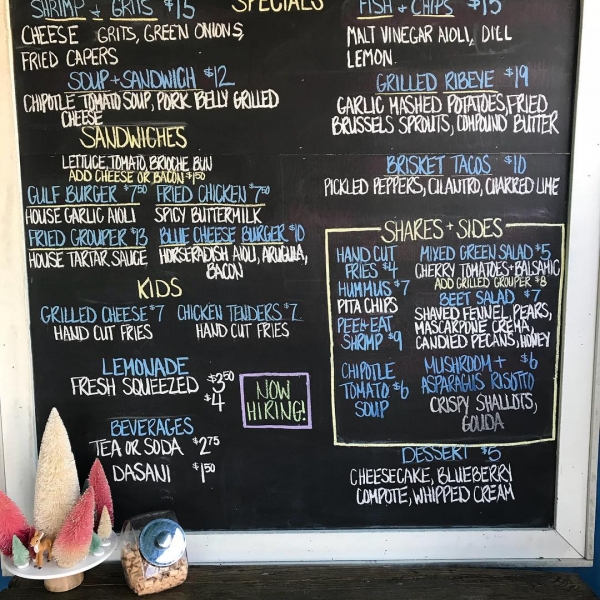 SPECIALS
SHRIMP + GRITS $15
CHEESE GRITS, GREEN ONIONS,
FRIED CAPERS
SOUP + SANDWICH $12
CHIPOTLE TOMATO SOUP, PORK BELLY GRILLED
CHEESE
SANDWICHES
LETTUCE, TOMATO, BRIOCHE BUN
ADD CHEESE OR BACON $1.50
GULF BURGER $7.50
HOUSE GARLIC AIOLI
FRIED CHICKEN $7.50
SPICY BUTTERMILK
FRIED GROUPER $13
HOUSE TARTAR SAUCE
BLUE CHEESE BURGER $10
HORSERADISH AIOLI, ARUGULA,
BACON
KIDS
GRILLED CHEESE $7
HAND CUT FRIES
CHICKEN TENDERS $7
HAND CUT FRIES
LEMONADE
FRESH SQUEEZED $3.50
$4
NOW
HIRING!
BEVERAGES
TEA OR SODA $2.75
DASANI $1.50
FISH + CHIPS $15
MALT VINEGAR AIOLI, DILL
LEMON
GRILLED RIBEYE $19
GARLIC MASHED POTATOES, FRIED
BRUSSELS SPROUTS, COMPOUND BUTTER
BRISKET TACOS $10
PICKLED PEPPERS, CILANTRO, CHARRED LIME
SHARES + SIDES
HAND CUT
FRIES $4
HUMMUS $7
PITA CHIPS
PEEL+EAT
SHRIMP $9
CHIPOTLE
TOMATO $6
SOUP
MIXED GREEN SALAD $5
CHERRY TOMATOES + BALSAMIC
ADD GRILLED GROUPER $8
BEET SALAD $7
SHAVED FENNEL, PEARS,
MASCARPONE CREMA,
CANDIED PECANS, HONEY
MUSHROOM + $6
ASPARAGUS RISOTTO
CRISPY SHALLOTS,
GOUDA
DESSERT $5
CHEESECAKE, BLUEBERRY
COMPOTE, WHIPPED CREAM